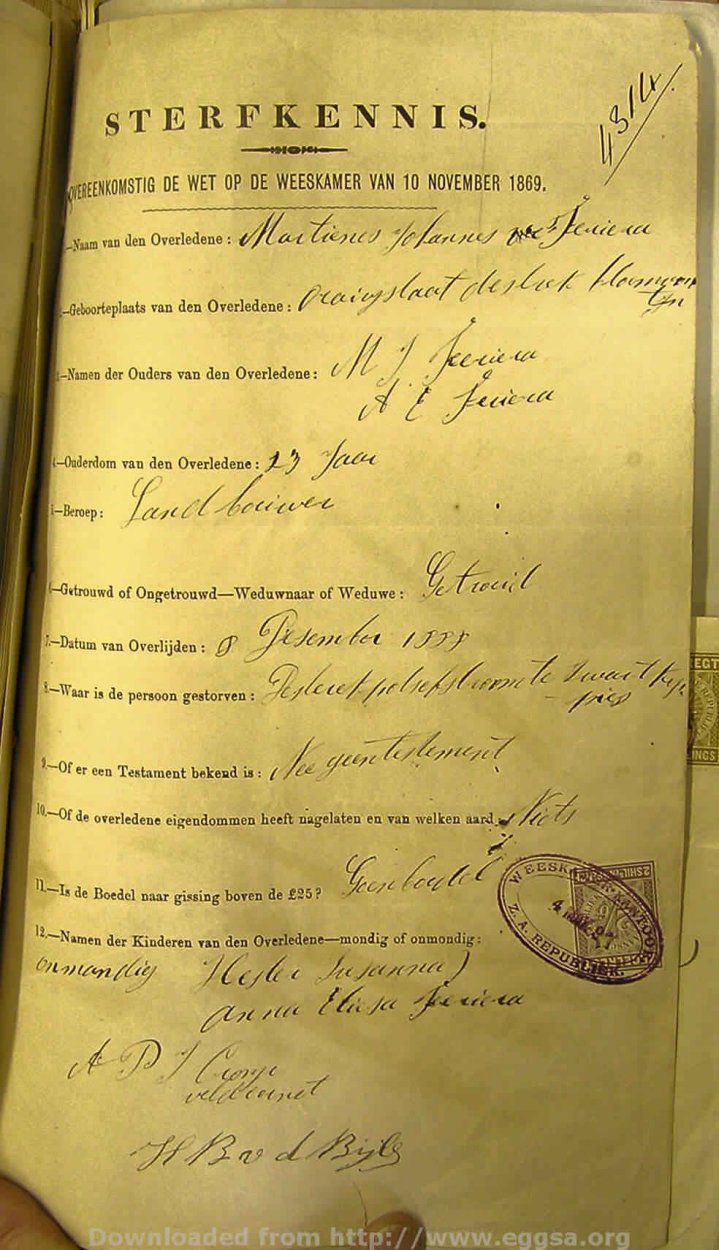 4314
STERFKENNIS.
OVEREENKOMSTIG DE WET OP DE WEESKAMER VAN 10 NOVEMBER 1869.
—Naam van den Overledene: Martienus Johannes Fereiera
—Geboorteplaats van den Overledene:
—Namen der Ouders van den Overledene: M J Fereiera
A E Fereiera
—Ouderdom van den Overledene: 23 Jaar
—Beroep: Landbouwer
—Getrouwd of Ongetrouwd—Weduwnaar of Weduwe: Getrouid
7.—Datum van Overlijden: 8 Desember 1888
8.—Waar is de persoon gestorven: Zwart Kop
pies
9.—Of er een Testament bekend is: Nee geen testement
10.—Of de overledene eigendommen heeft nagelaten en van welken aard: Niets
11.—Is de Boedel naar gissing boven de £25? Geen boydel
12.—Namen der Kinderen van den Overledene—mondig of onmondig:
onmondig Hester Susanna
Anna Eliesa Fereiera
A P J Cronje
veldcornet
H B v d Bijl
WEESKAMER KANTOOR
Z. A. REPUBLIEK.
Downloaded from http://www.eggsa.org